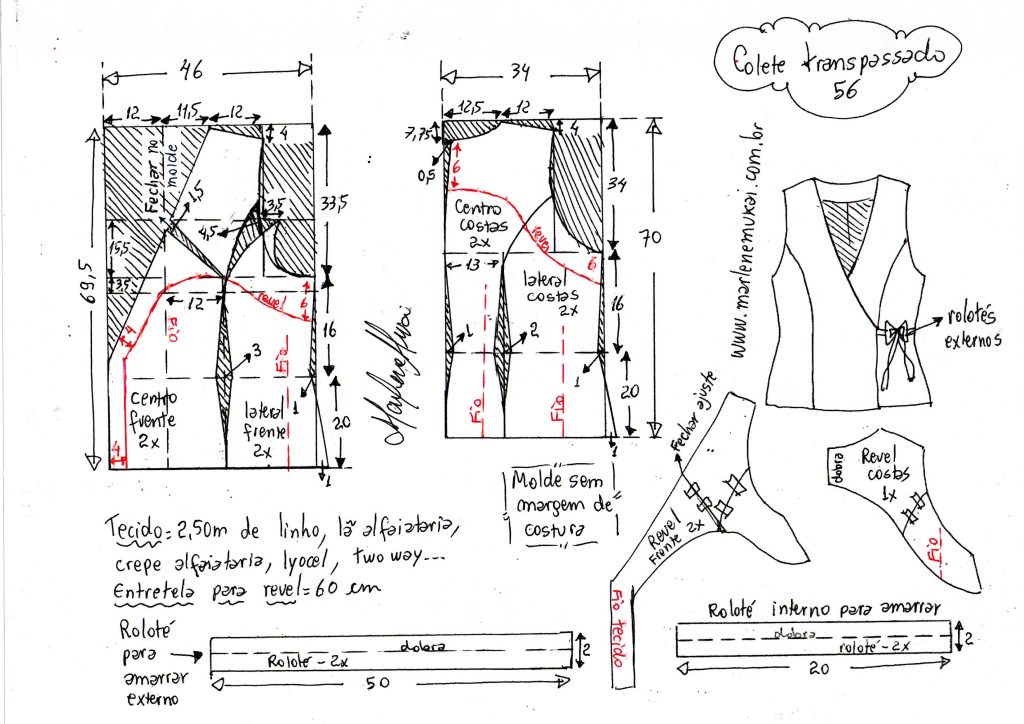 Colete transpassado
56
www.marlenemukai.com.br
46
12
11,5
12
4
Fechar no
molde
1,5
3,5
4,5
33,5
15,5
3,5
69,5
12
revel
6
16
4
fio
Fio
3
1
centro
frente
2x
lateral
frente
2x
20
4
1
34
12,5
12
7,75
4
0,5
6
34
70
centro
costas
2x
revel
13
6
lateral
costas
2x
16
1
2
1
20
Fio
Fio
1
Marlene Mukai
rolotés
externos
Molde sem
margem de
costura
Fechar ajuste
Revel
Frente 2x
Fio tecido
dobra
Revel
costas
1x
Fio
Tecido = 2,50m de linho, lã alfaiataria,
crepe alfaiataria, lyocel, two way...
Entretela para revel = 60 cm
Roloté
para
amarrar
externo
dobra
Roloté - 2x
2
50
Roloté interno para amarrar
dobra
roloté - 2x
2
20